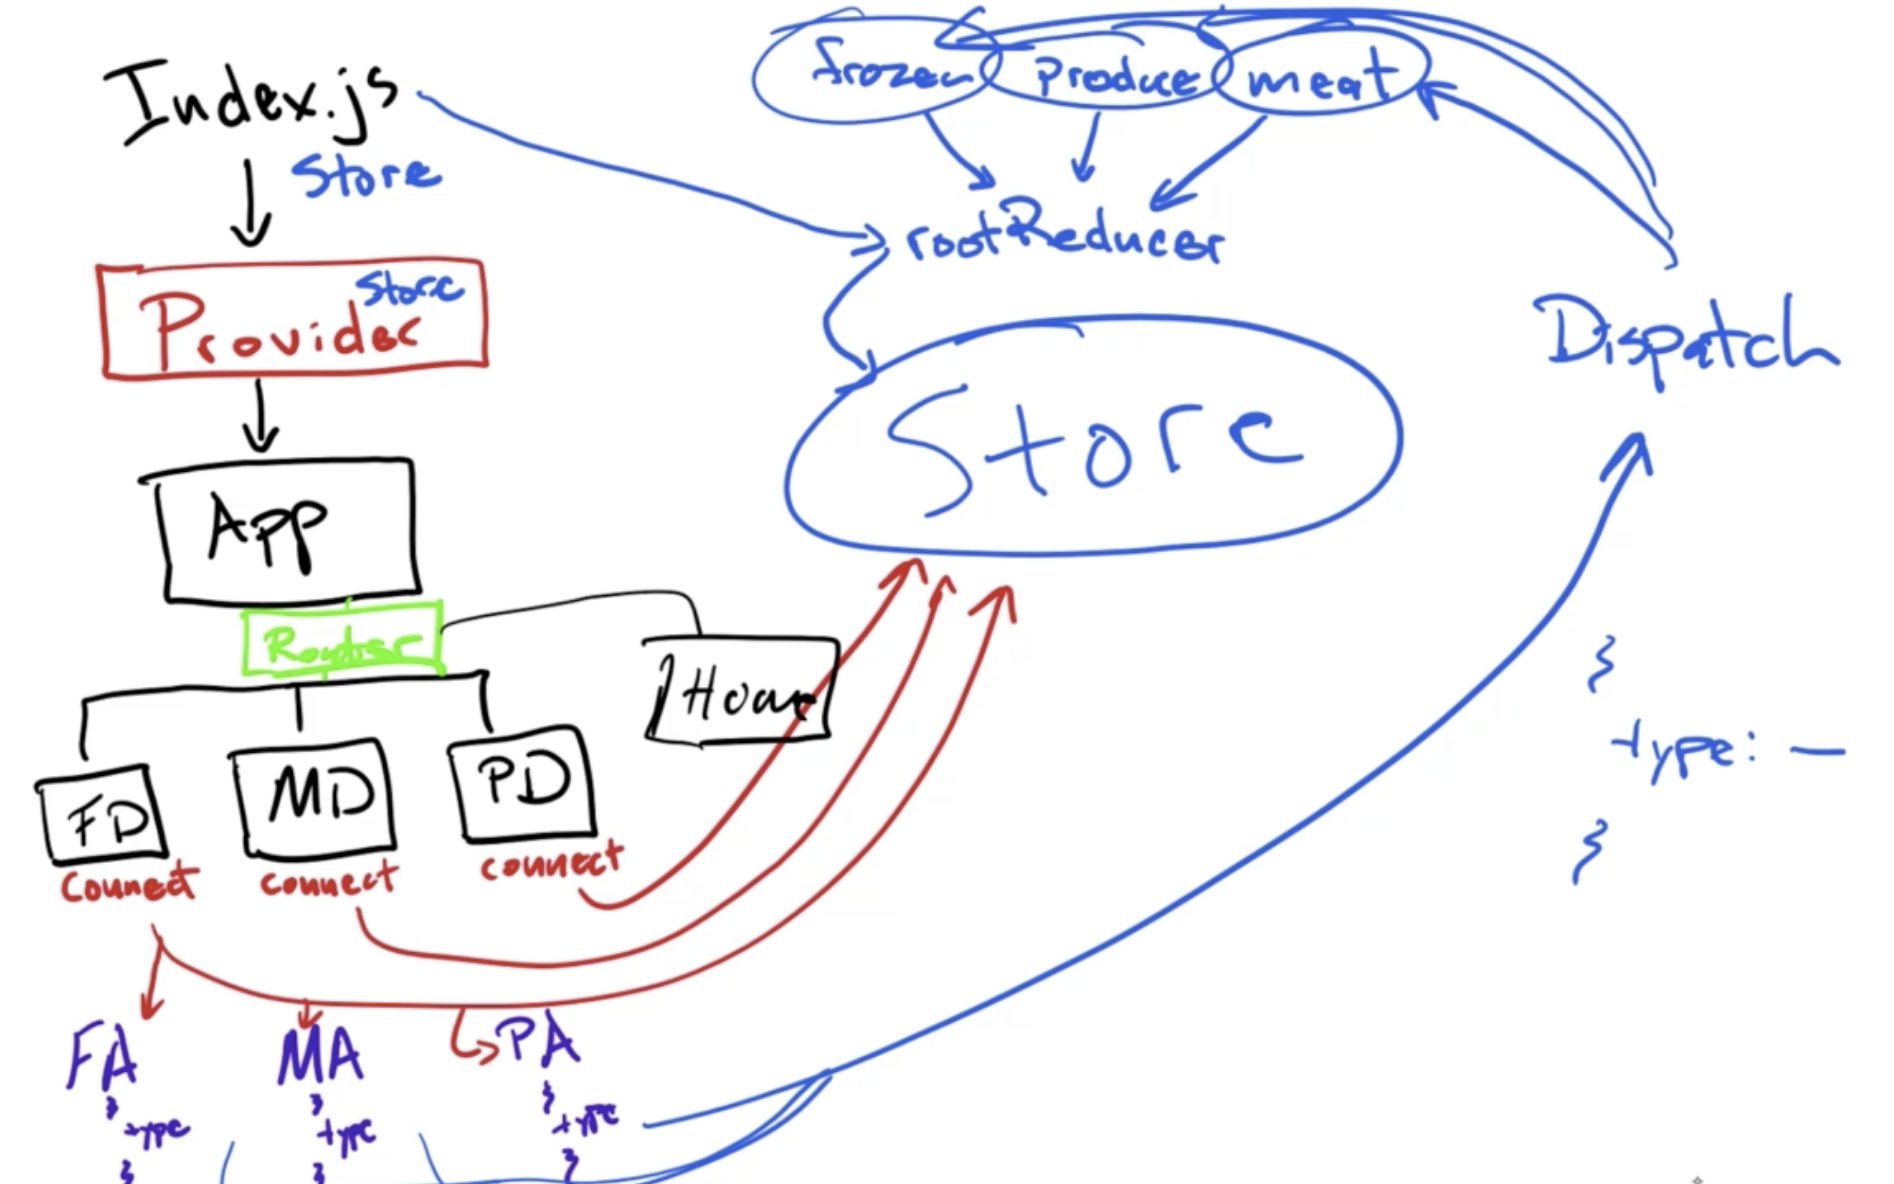 Index.js
Store
Provider
Store
App
Router
Home
FD
MD
PD
connect
connect
connect
FA
MA
PA
}
type
}
}
type
}
}
type
}
frozen
produce
meat
rootReducer
Store
Dispatch
}
type: —
}